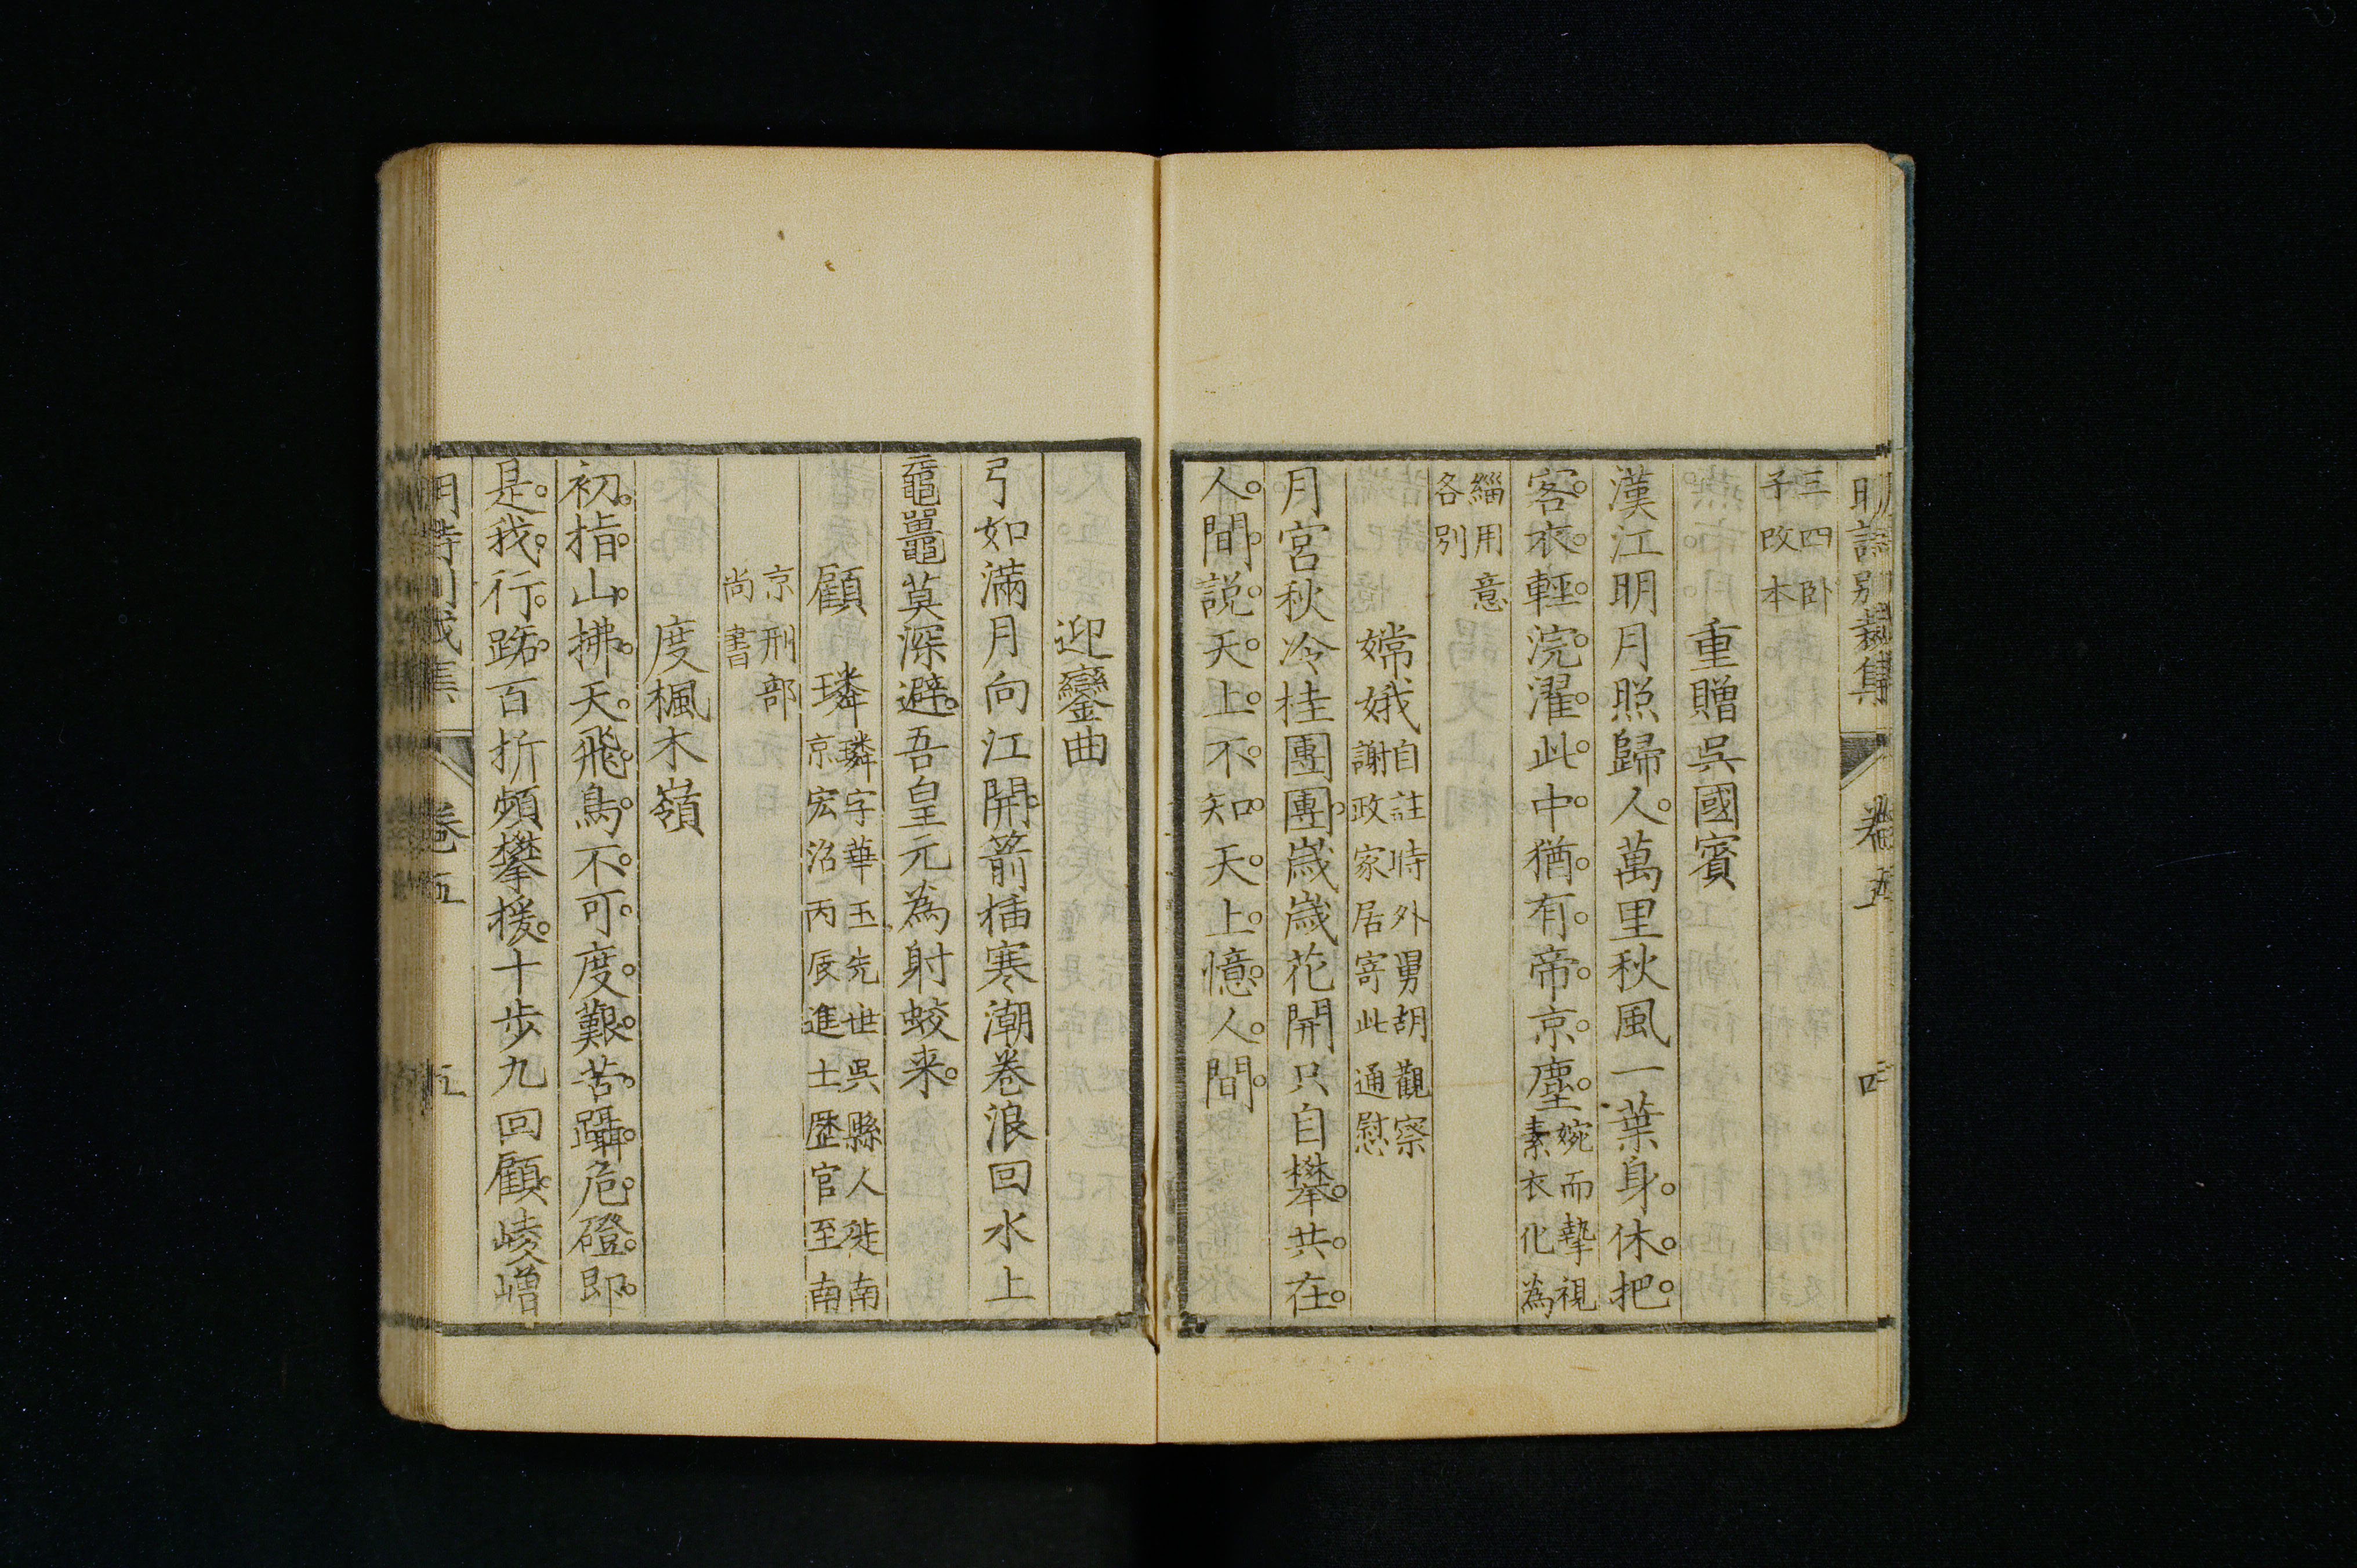 明詩別裁集 卷五 四
三四卧
子改本
重贈吳國賓
漢江明月照歸人。萬里秋風一葉身。休。把。
客。衣。輕。浣。濯。此。中。猶。有。帝。京。塵。婉而摯視
素衣化為
緇用意
各別
嫦娥自註時外舅胡觀察
謝政家居寄此通慰
月宮秋冷桂團團。歲歲花開只自攀。共。在。
人。間。說。天。上。不。知。天。上。憶。人。間。
迎鑾曲
弓如滿月向江開。箭插寒潮卷浪回水上
黿鼉莫深避。吾皇元為射蛟来。
顧璘璘字華玉先世吳縣人徙南
京宏治丙辰進士歷官至南
京刑部
尚書
度楓木嶺
初。指。山。拂。天。飛。鳥。不。可。度。艱。苦。躡。危。磴。即。
是。我。行。路。百折頻攀援。十步九回顧。崚嶒
明詩別裁集 卷五 五